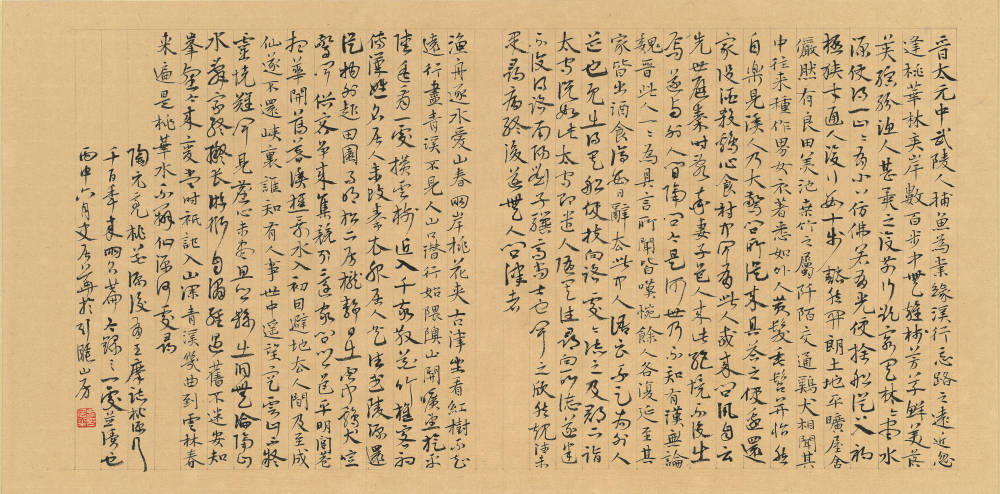 晉太元中武陵人捕魚為業緣溪行忘路之遠近忽
逢桃華林夾岸數百步中無雜樹芳草鮮美落
英繽紛漁人甚異之復前行欲窮其林林盡水
源便得一山山有小口仿佛若有光便捨船從口入初
極狹才通人復行數十步豁然開朗土地平曠屋舍
儼然有良田美池桑竹之屬阡陌交通鷄犬相聞其
中往來種作男女衣著悉如外人黃髮垂髫并怡然
自樂見漁人乃大驚問所從來具答之便要還
家設酒殺鷄作食村中聞有此人咸來問訊自云
先世避秦時亂率妻子邑人來此絕境不復出
焉遂與外人間隔問今是何世乃不知有漢無論
魏晉此人一一為具言所聞皆嘆惋餘人各復延至其
家皆出酒食停數日辭去此中人語云不足為外人
道也既出得其船便扶向路處處誌之及郡下詣
太守說如此太守即遣人隨其往尋向所誌遂迷
不復得路南陽劉子驥高尚士也聞之欣然規往未
果尋病終後遂無人問津者
漁舟逐水愛山春兩岸桃花夾古津坐看紅樹不知
遠行盡青溪不見人山口潛行始隈隩山開曠望旋平
陸遙看一處攢雲樹近入千家散花竹樵客初
傳漢姓名居人未改秦衣服居人共住武陵源還
從物外起田園月明松下房櫳靜日出雲中鷄犬喧
驚聞俗客爭來集競引還家問都邑平明閭巷
掃華開薄暮漁樵乘水入初因避地去人間及至成
仙遂不還峽裏誰知有人事世中遙望空雲山不疑
靈境難聞見塵心未盡思鄉縣出洞無論隔山
水辭家終擬長游衍自謂經過舊不迷安知
峯壑今來變當時祇記入山深青溪幾曲到雲林春
來遍是桃華水不辨仙源何處尋
陶元亮桃花源後有王摩詰桃源行
千百年來兩名篇今錄之一處并讀也
丙申六月史居并於引睡山房